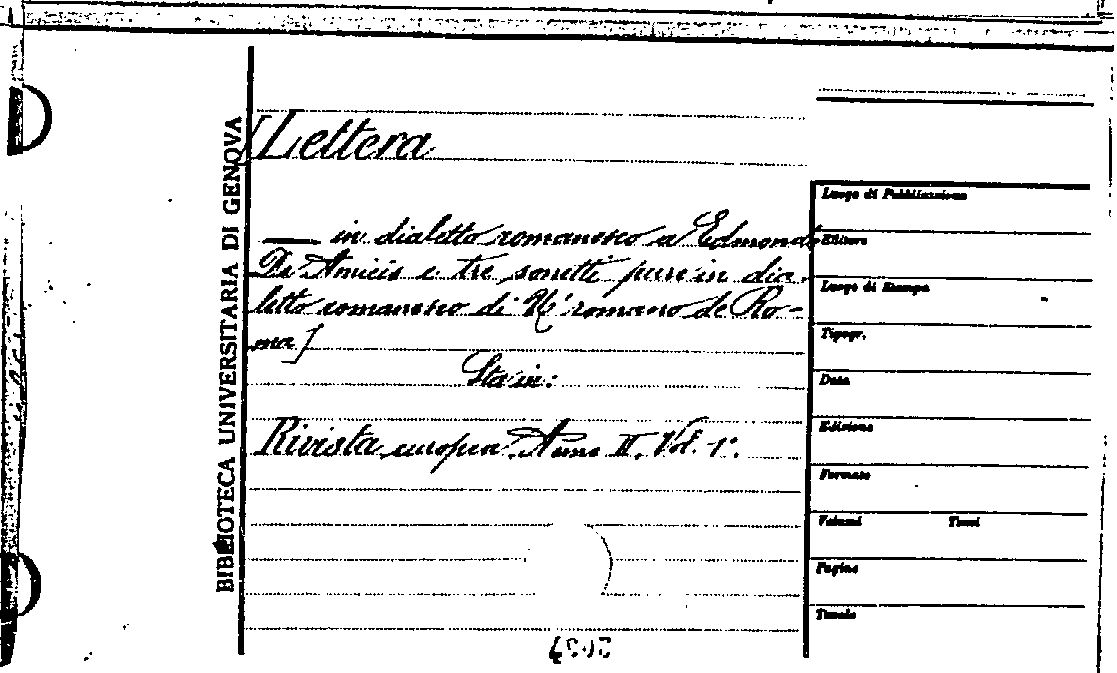 BIBLIOTECA UNIVERSITARIA DI GENOVA
[Lettera
— in dialetto romanesco a Edmondo
De Amicis e tre sonetti pure in dia-
letto romanesco di N' romano de Ro-
ma]
Sta in:
Rivista europea. Anno II. Vol. 1°.
Luogo di Pubblicazione
Editore
Luogo di Stampa
Tipogr.
Data
Edizione
Formato
Volumi Tomi
Pagine